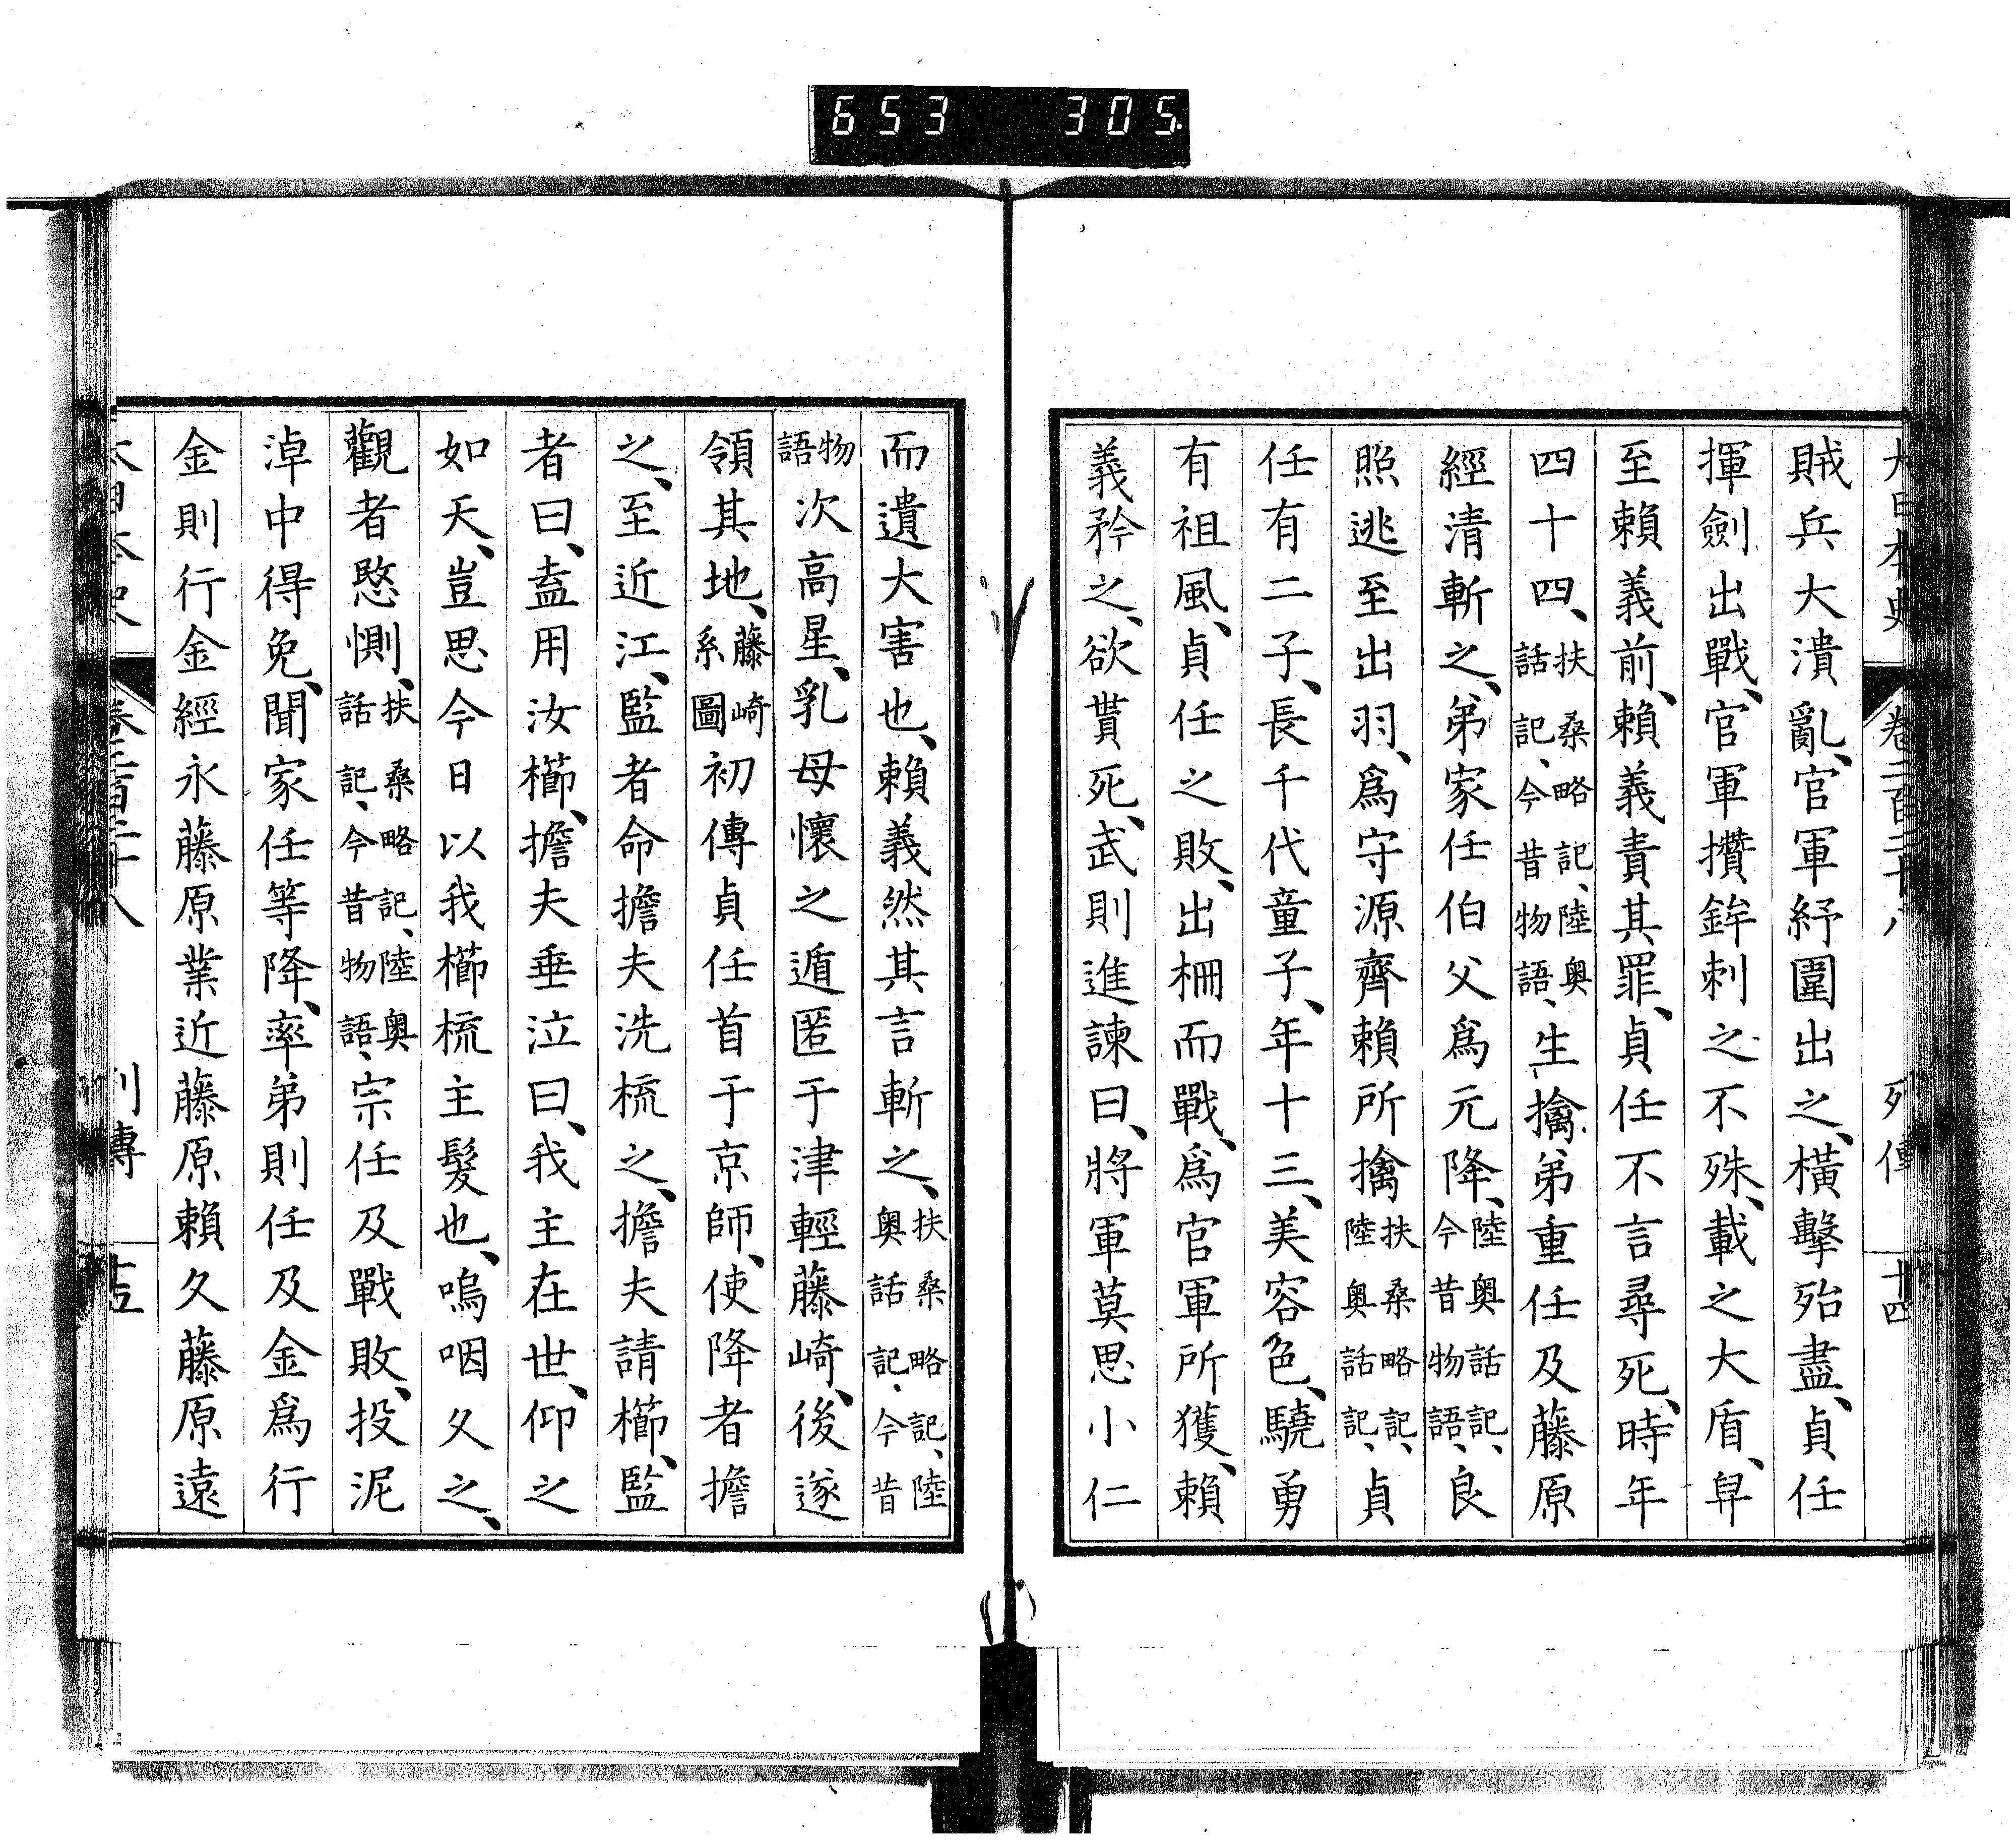 653 305.
大日本史 卷二百二十八 列傳 十四
賊兵大潰亂、官軍紓圍出之、橫擊殆盡、貞任
揮劍出戰、官軍攢鉾刺之不殊、載之大盾、舁
至賴義前、賴義責其罪、貞任不言尋死、時年
四十四、扶桑略記、陸奥話記、今昔物語、生擒弟重任及藤原
經清斬之、弟家任伯父爲元降、陸奥話記、今昔物語、良
照逃至出羽、爲守源齊賴所擒扶桑略記、陸奥話記、貞
任有二子、長千代童子、年十三、美容色、驍勇
有祖風、貞任之敗、出柵而戰、爲官軍所獲、賴
義矜之、欲貰死、武則進諫曰、將軍莫思小仁
而遺大害也、賴義然其言斬之、扶桑略記、陸奥話記、今昔
物語次高星、乳母懷之遁匿于津輕藤崎、後遂
領其地、藤崎系圖初傳貞任首于京師、使降者擔
之、至近江、監者命擔夫洗梳之、擔夫請櫛、監
者曰、盍用汝櫛、擔夫垂泣曰、我主在世、仰之
如天、豈思今日以我櫛梳主髮也、嗚咽久之、
觀者愍惻、扶桑略記、陸奥話記、今昔物語、宗任及戰敗、投泥
淖中得免、聞家任等降、率弟則任及金爲行
金則行金經永藤原業近藤原賴久藤原遠
大日本史 卷二百二十八 列傳 十五